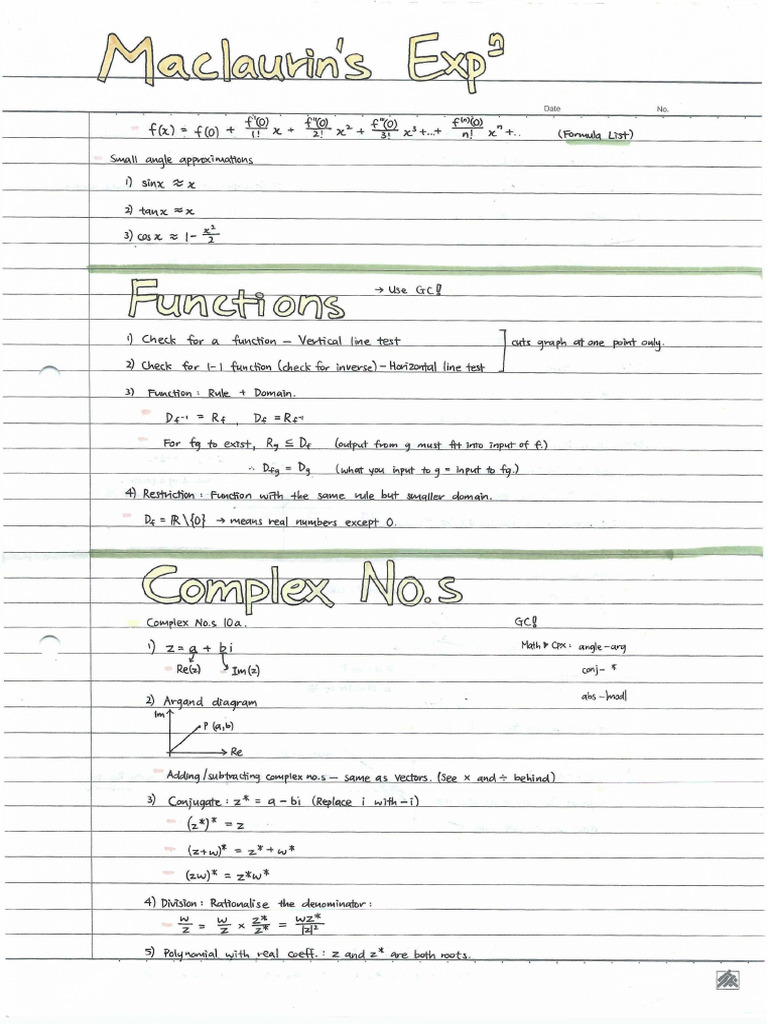 Maclaurin's Expⁿ
Date No.
f(x) = f(0) + f'(0)/1! x + f''(0)/2! x² + f'''(0)/3! x³ +...+ f⁽ⁿ⁾(0)/n! xⁿ +.. (Formula List)
Small angle approximations
1) sinx ≈ x
2) tanx ≈ x
3) cosx ≈ 1 - x²/2
Functions → Use GC!
1) Check for a function — Vertical line test
cuts graph at one point only.
2) Check for 1-1 function (check for inverse) — Horizontal line test
3) Function : Rule + Domain.
D_f⁻¹ = R_f , D_f = R_f⁻¹
For fg to exist, R_g ⊆ D_f (output from g must fit into input of f.)
∴ D_fg = D_g (what you input to g = input to fg.)
4) Restriction : Function with the same rule but smaller domain.
D_f = ℝ\{0} → means real numbers except 0.
Complex No.s
Complex No.s 10a. GC!
1) z = a + bi Math ▸ CPX : angle - arg
Re(z) Im(z) conj - *
2) Argand diagram abs - |mod|
Im
P (a,b)
Re
Adding/subtracting complex no.s — same as vectors. (See × and ÷ behind)
3) Conjugate : z* = a - bi (Replace i with -i)
(z*)* = z
(z+w)* = z* + w*
(zw)* = z*w*
4) Division : Rationalise the denominator :
w/z = w/z × z*/z* = wz*/|z|²
5) Polynomial with real coeff. : z and z* are both roots.